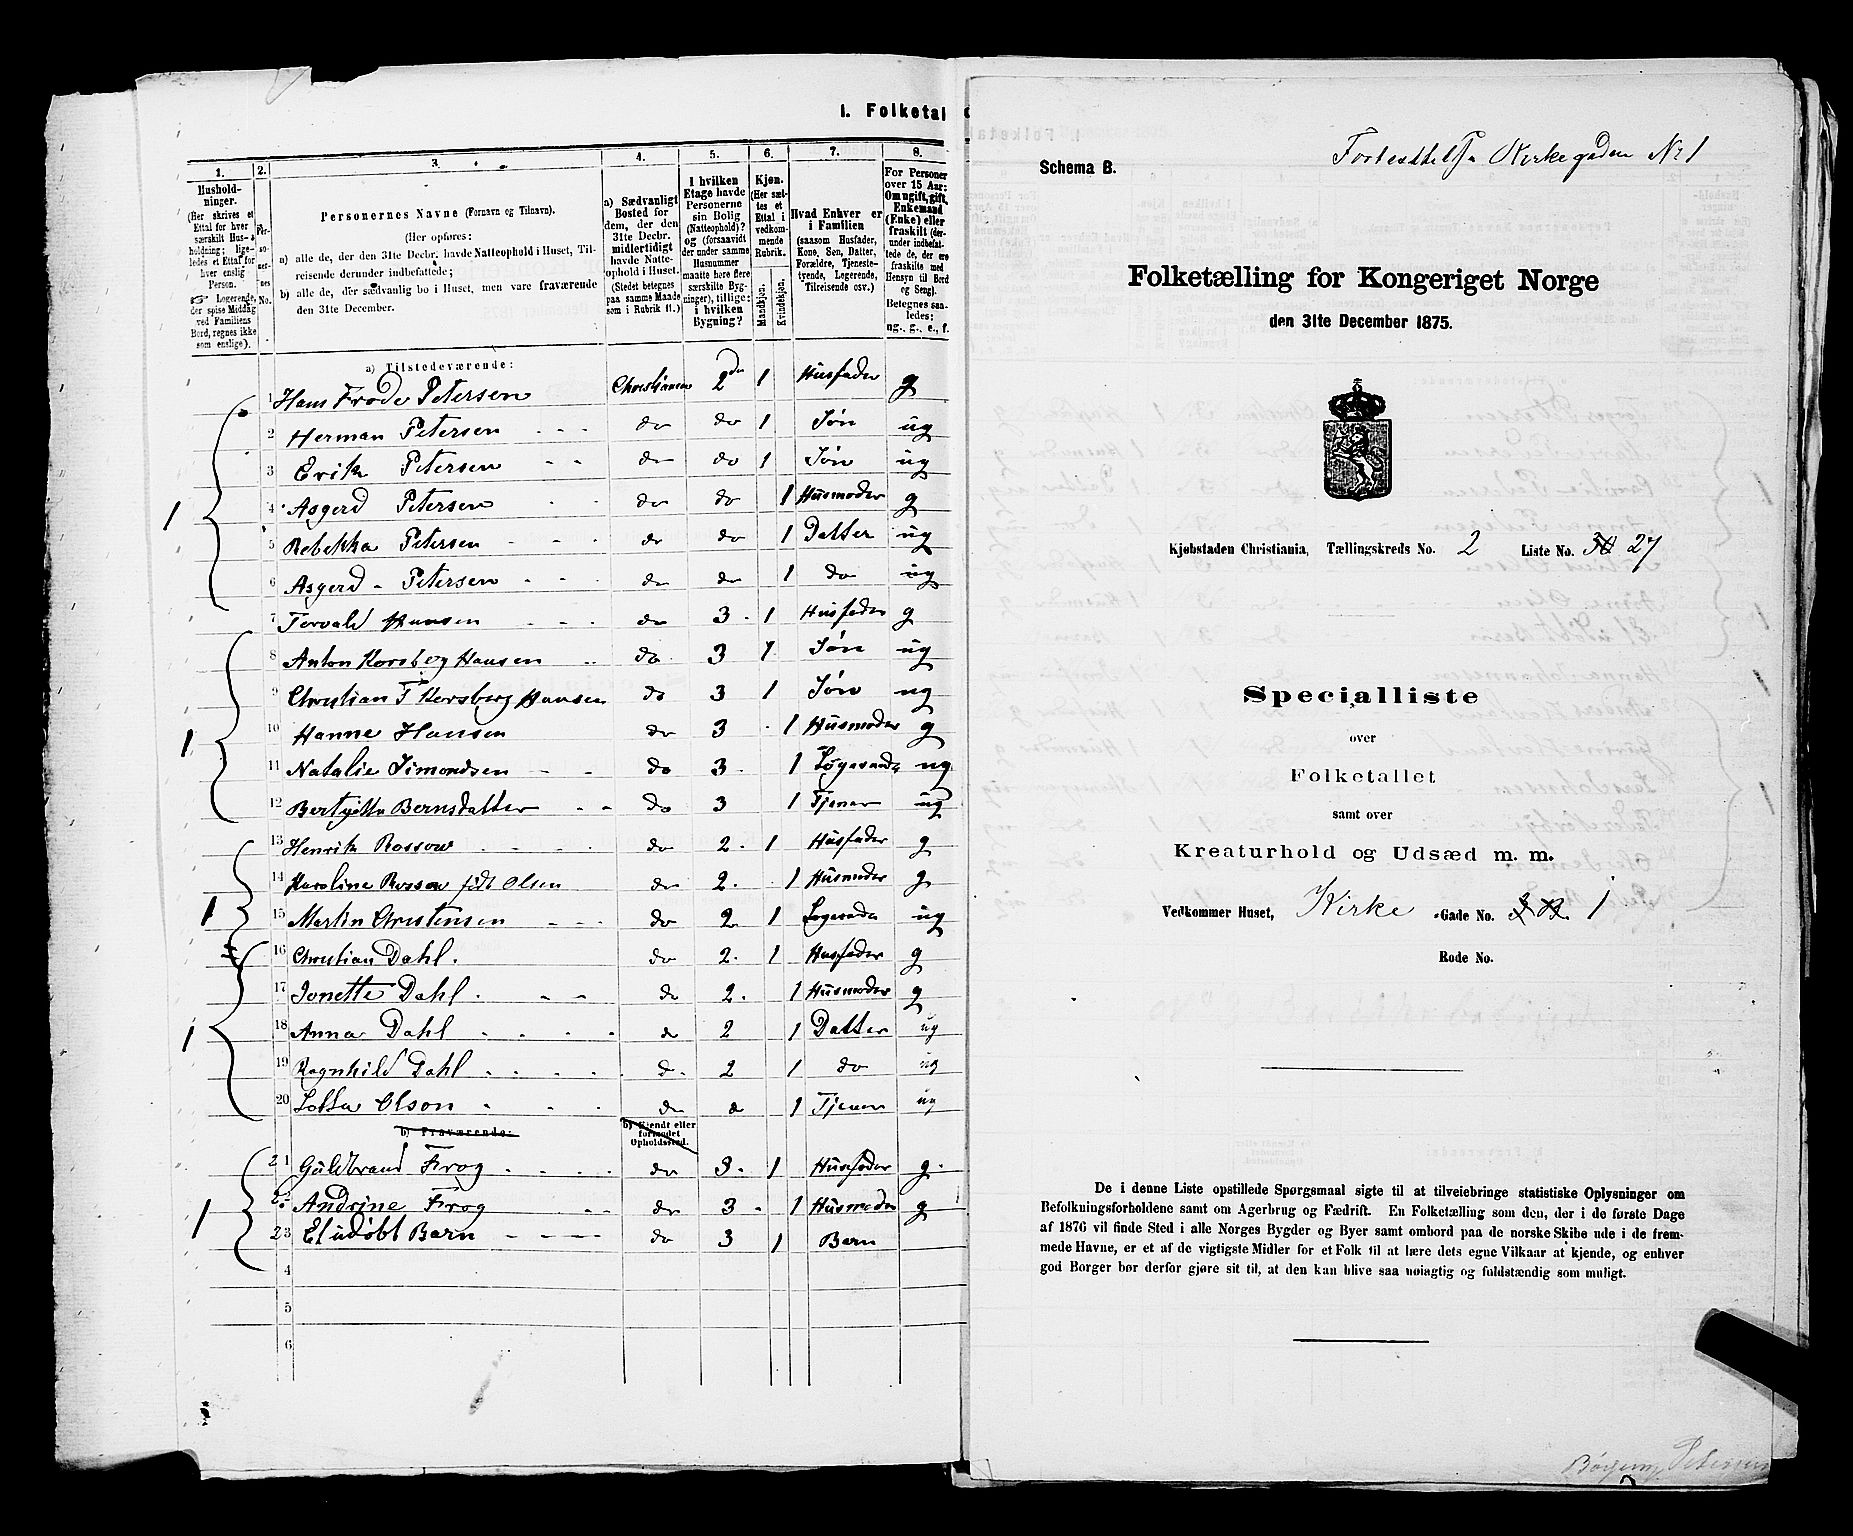 I. Folketal
1.
2.
3.
4.
5.
6.
7.
8.
Hushold-
ninger.
(Her skrives et
Ettal for hver
særskilt Hus-
holdning; lige-
ledes et Ettal for
hver enslig
Person.
☞ Logerende,
der spise Middag
ved Familiens
Bord, regnes ikke
som enslige).
Per-
so-
ner-
nes
No.
Personernes Navne (Fornavn og Tilnavn).
(Her opføres:
a) alle de, der den 31te Decbr. havde Natteophold i Huset, Til-
reisende derunder indbefattede;
b) alle de, der sædvanlig bo i Huset, men vare fraværende
den 31te December.
a) Sædvanligt
Bosted for
dem, der den
31te Decbr.
midlertidigt
havde Natte-
ophold i Huset.
(Stedet betegnes
paa samme Maade
som i Rubrik 11.)
I hvilken
Etage havde
Personerne
sin Bolig
(Natteophold)?
og (forsaavidt
der under samme
Husnummer
maatte høre flere
særskilte Byg-
ninger), tillige:
i hvilken
Bygning?
Kjøn.
(Her sæt-
tes et
Ettal i
vedkom-
mende
Rubrik.
Mandkjøn.
Kvindekjøn.
Hvad Enhver er
i Familien
(saasom Husfader,
Kone, Søn, Datter,
Forældre, Tjeneste-
tyende, Logerende,
Tilreisende osv.)
For Personer
over 15 Aar:
Om ugift, gift,
Enkemand
(Enke) eller
fraskilt (der-
under indbefat-
tede de, der ere
fraskilte med
Hensyn til Bord
og Seng).
Betegnes saa-
ledes:
ug., g., e., f.
a) Tilstedeværende:
1 Hans Frode Petersen Christiania 2den 1 Husfader g
2 Herman Petersen do do 1 Søn ug
3 Erik Petersen do do 1 Søn ug
4 Asgerd Petersen do do 1 Husmoder g
1
5 Rebekka Petersen do do 1 Datter ug
6 Asgerd Petersen do do 1 do ug
7 Torvald Hansen do 3 1 Husfader g
8 Anton Korsberg Hansen do 3 1 Søn ug
9 Christian F Korsberg Hansen do 3 1 Søn ug
1 10 Hanne Hansen do 3 1 Husmoder g
11 Natalie Simondsen do 3 1 Logerende ug
12 Berndsdatter do 3 1 Tjener ug
13 Henrik Rossow do 2 1 Husfader g
14 Karoline Rossow født Olsen do 2 1 Husmoder g
1 15 Martin Christensen do 2 1 ug
16 Christian Dahl. do 2 1 Husfader g
17 Jonette Dahl. do 2 1 Husmoder g
1 18 Anna Dahl do 2 1 Datter ug
19 Ragnhild Dahl do 2 1 do ug
20 Lotta Olson do 2 1 Tjener ug
b) Fraværende:
b) Kjendt eller
formodet
Opholdssted.
21 Guldbrand Frog do 3 1 Husfader g
1 22 Andrine Frog do 3 1 Husmoder g
23 Et udøbt Barn do 3 1 Barn
4
5
6
Kirkegaden No 1
Schema B.
Folketælling for Kongeriget Norge
den 31te December 1875.
Kjøbstaden Christiania, Tællingskreds No. 2 Liste No. 30 27
Specialliste
over
Folketallet
samt over
Kreaturhold og Udsæd m. m.
Vedkommer Huset, Kirke -Gade No. 1
Rode No.
De i denne Liste opstillede Spørgsmaal sigte til at tilveiebringe statistiske Oplysninger om
Befolkningsforholdene samt om Agerbrug og Fædrift. En Folketælling som den, der i de første Dage
af 1876 vil finde Sted i alle Norges Bygder og Byer samt ombord paa de norske Skibe ude i de frem-
mede Havne, er et af de vigtigste Midler for et Folk til at lære dets egne Vilkaar at kjende, og enhver
god Borger bør derfor gjøre sit til, at den kan blive saa nøiagtig og fuldstændig som muligt.
Petersen